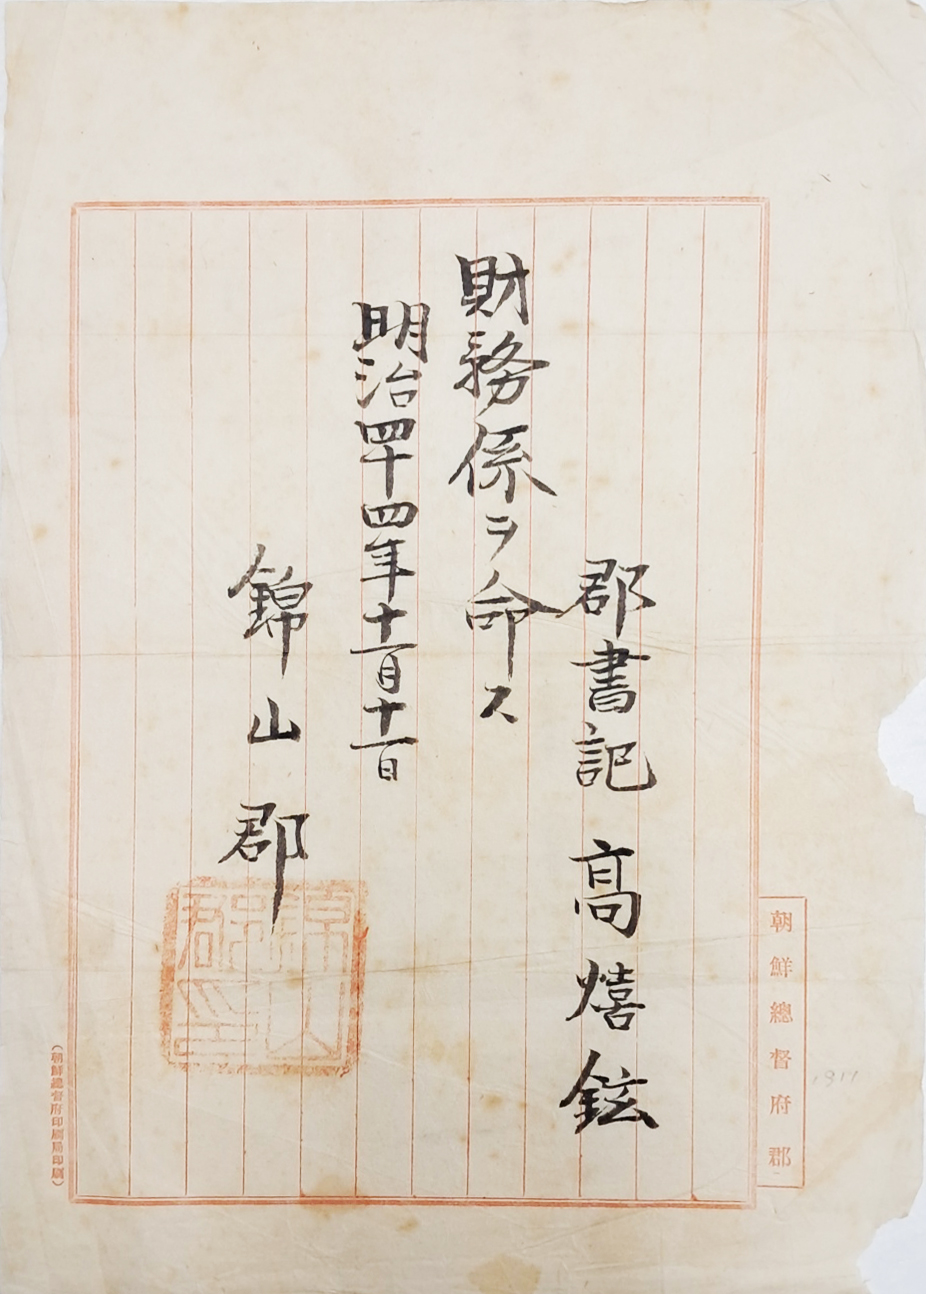 朝鮮總督府郡
郡書記 高熺鉉
財務係ヲ命ス
明治四十四年十一月十一日
錦山郡
錦山郡印
(朝鮮總督府印刷局印刷)
1911